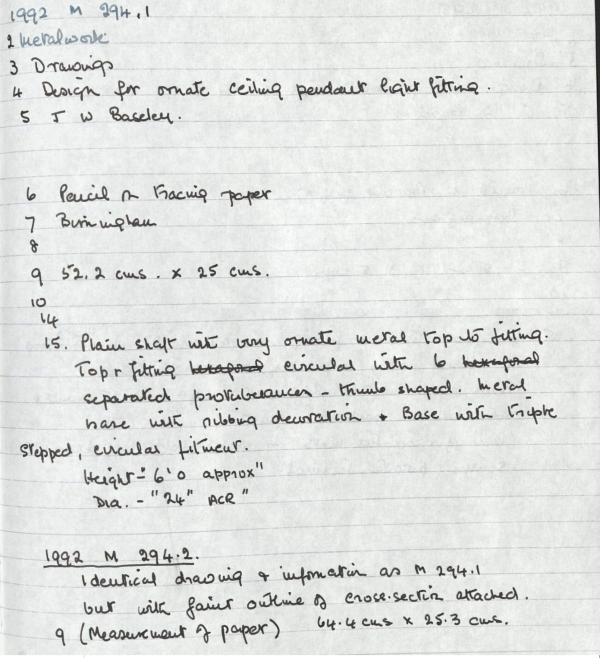 1992 M 294.1
2 Metalwork
3 Drawings
4 Design for ornate ceiling pendant light fitting.
5 J W Baseley.
6 Pencil on tracing paper
7 Birmingham
8
9 52.2 cms. x 25 cms.
10
14
15. Plain shaft with very ornate metal top to fitting.
Top of fitting hexagonal circular with 6 hexagonal
separated protuberances - thumb shaped. Metal
base with ribbing decoration + Base with triple
stepped, circular fitment.
Height - "6'0 approx"
Dia. - "24" ACR"
1992 M 294.2.
Identical drawing & information as M 294.1
but with faint outline of cross-section attached.
9 (Measurement of paper) 64.4 cms x 25.3 cms.